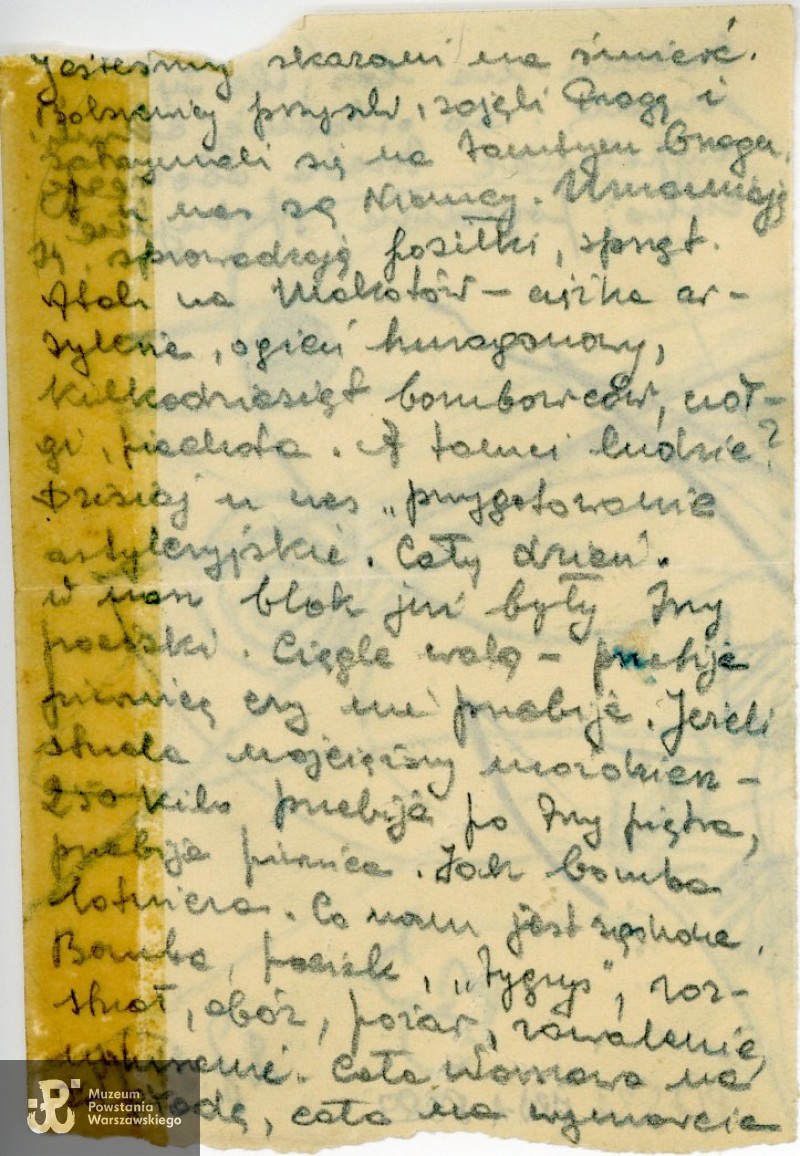 Jesteśmy skazani na śmierć.
Bolszewicy przyszli, zajęli Pragę i
zatrzymali się na tamtym brzegu.
A u nas są Niemcy. Umacniają
się, sprowadzają posiłki, sprzęt.
Atak na Mokotów – ciężka ar-
tyleria, ogień huraganowy,
kilkadziesiąt bombowców, czoł-
gi, piechota. A tamci ludzie?
Dzisiaj u nas „przygotowanie
artyleryjskie. Cały dzień".
W nasz blok już były trzy
pociski. Ciągle walą – przebije
piwnicę czy nie przebije. Jeżeli
strzela najcięższy moździerz –
250 kilo przebija po trzy piętra,
przebija piwnice. Jak bomba
lotnicza. Co nam jest sądzone.
Bomba, pocisk, „Tygrys", roz-
strzał, obóz, pożar, zawalenie,
Cała Warszawa na
cała na wymarcie
Muzeum
Powstania
Warszawskiego